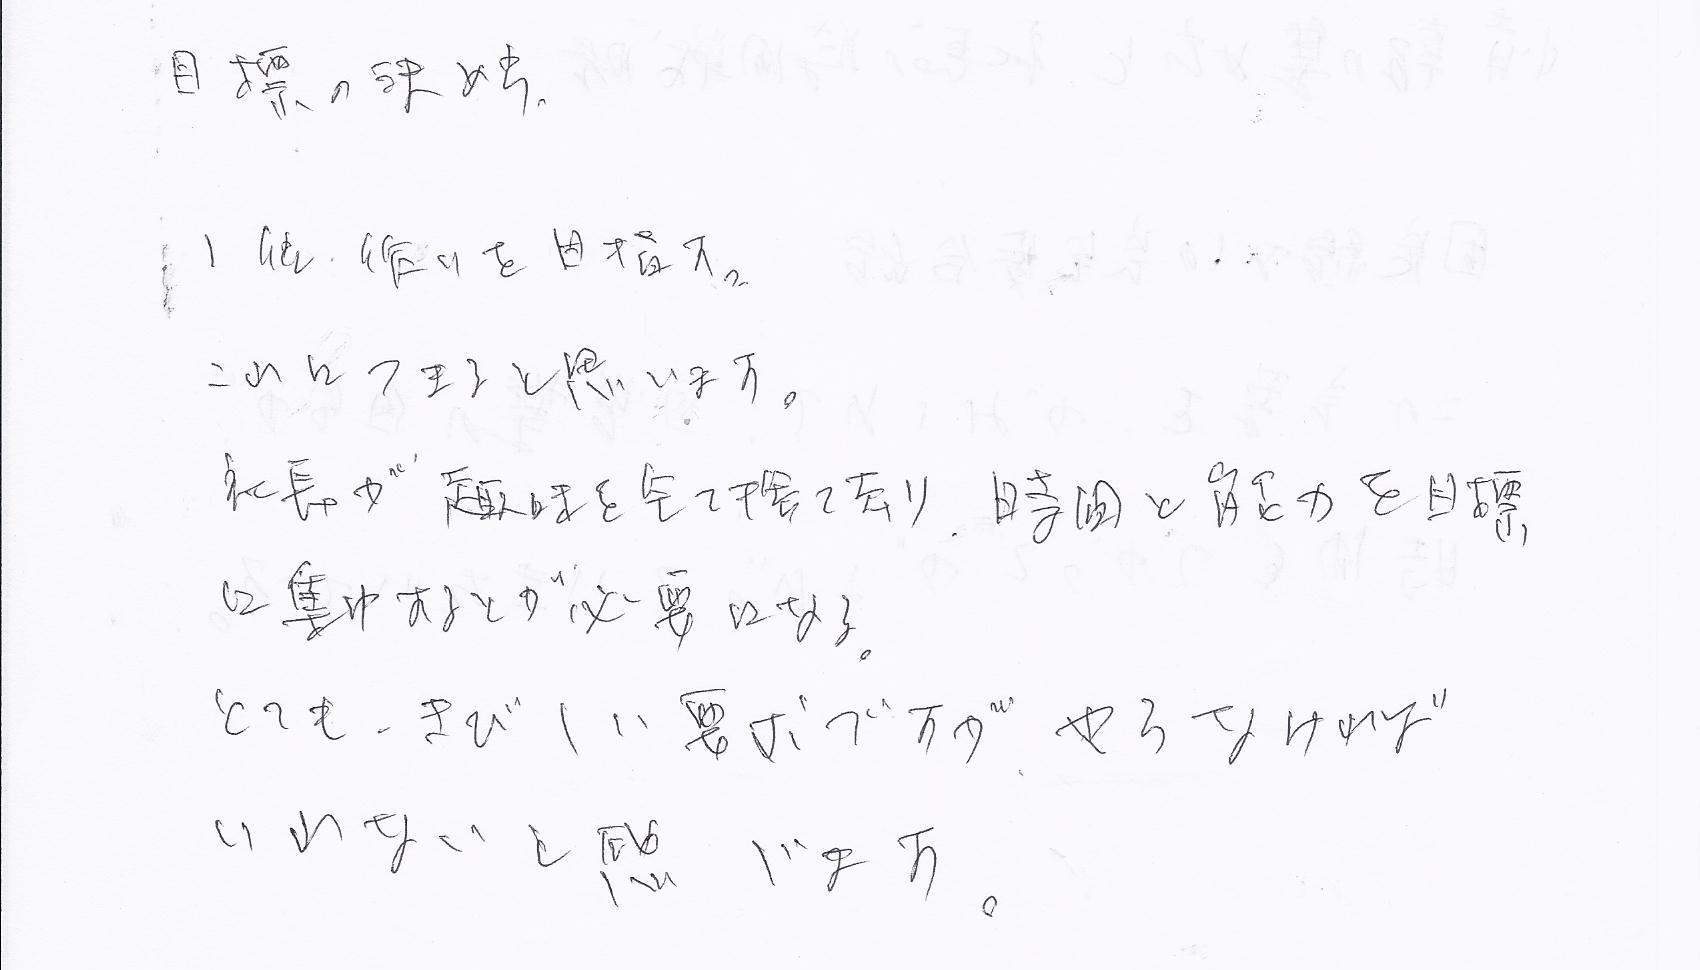 目標の決め方、
1位作りを目指す。
これはできると思います。
社長が趣味を全て捨て去り、時間と能力を目標
に集中することが必要になる。
とても、きびしい要求ですが、やらなければ
いけないと感じます。